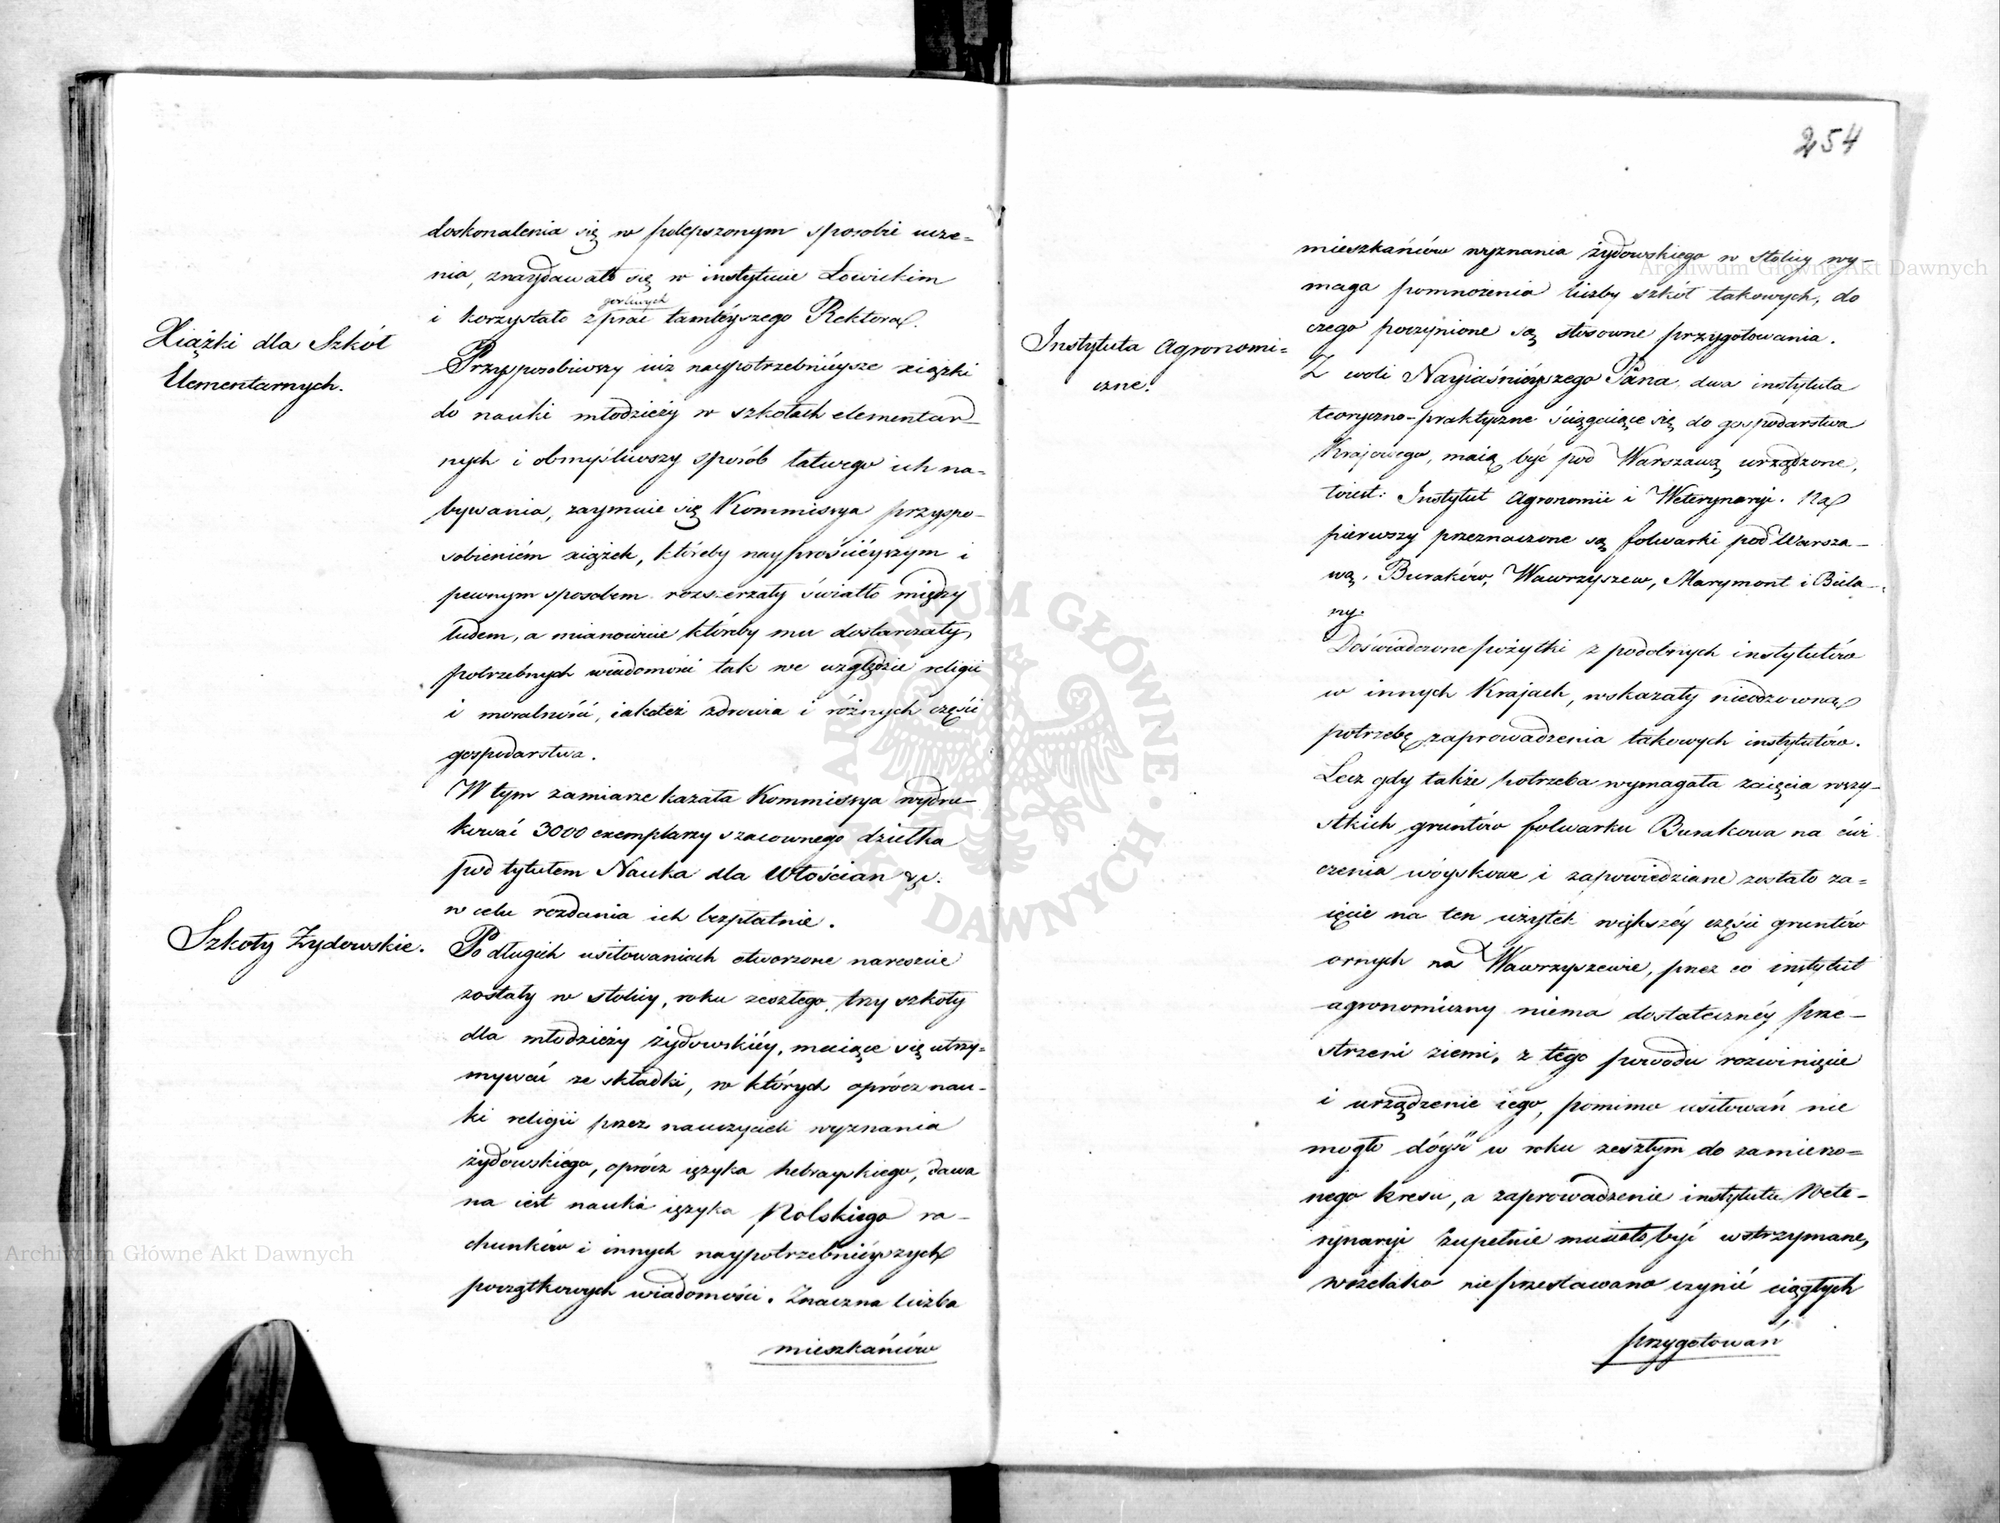 doskonalenia się w polepszonym sposobie ucze-
nia, znaydowało się w instytucie Łowickim
gorliwych
i korzystało z prac tamteyszego Rektora.
Xiążki dla Szkół
Elementarnych.
Przysposobiwszy iuż naypotrzebnieysze xiążki
do nauki młodzieży w szkołach elementar-
nych i obmyśliwszy sposób łatwego ich na-
bywania, zaymuie się Kommissya przyspo-
sobieniem xiążek, któreby nayprościéyszym i
pewnym sposobem rozszerzały światło między
ludem, a mianowicie któreby mu dostarczały
potrzebnych wiadomości tak we względzie religii
i moralności, iakoteż zdrowia i różnych części
gospodarstwa.
W tym zamiarze kazała Kommissya wydru-
kować 3000 exemplarzy szacownego dziełka
pod tytułem Nauka dla Włościan &c.
w celu rozdania ich bezpłatnie.
Szkoły Żydowskie.
Po długich usiłowaniach otworzone nareszcie
zostały w stolicy, roku zeszłego, trzy szkoły
dla młodzieży żydowskiéy, maiące się utrzy-
mywać ze składki, w których oprócz nau-
ki religii przez nauczycieli wyznania
żydowskiego, oprócz ięzyka hebrayskiego, dawa
na iest nauka ięzyka Polskiego ra-
chunków i innych naypotrzebniéyszych
początkowych wiadomości. Znaczna liczba
mieszkańców
254
mieszkańców wyznania żydowskiego w stolicy wy-
maga pomnożenia liczby szkół takowych, do
czego poczynione są stosowne przygotowania.
Instytuta Agronomi-
czne.
Z woli Nayiaśniéyszego Pana dwa instytuta
teoryczno-praktyczne ściągaiące się do gospodarstwa
Krajowego, maią być pod Warszawą urządzone,
toiest: Instytut Agronomii i Weterynaryi. Na
pierwszy przeznaczone są folwarki pod Warsza-
wą, Buraków, Wawrzyszew, Marymont i Biela-
ny.
Doświadczone pożytki z podobnych instytutów
w innych Krajach, wskazały nieodzowną
potrzebę zaprowadzenia takowych instytutów.
Lecz gdy także potrzeba wymagała zaięcia wszy-
stkich gruntów folwarku Burakowa na ćwi
czenia wóyskowe i zapowiedziane zostało za-
ięcie na ten użytek większéy części gruntów
ornych na Wawrzyszewie, przez co instytut
agronomiczny niema dostatecznéy prze-
strzeni ziemi, z tego powodu rozwinięcie
i urządzenie iego, pomimo usiłowań nie
mogło dóyść w roku zeszłym do zamierzo-
nego kresu, a zaprowadzenie instytutu Wete-
rynaryi zupełnie musiało być wstrzymane,
wszelako nie przestawano czynić ciągłych
przygotowań
Archiwum Główne Akt Dawnych
Archiwum Główne Akt Dawnych
ARCHIWUM GŁÓWNE AKT DAWNYCH